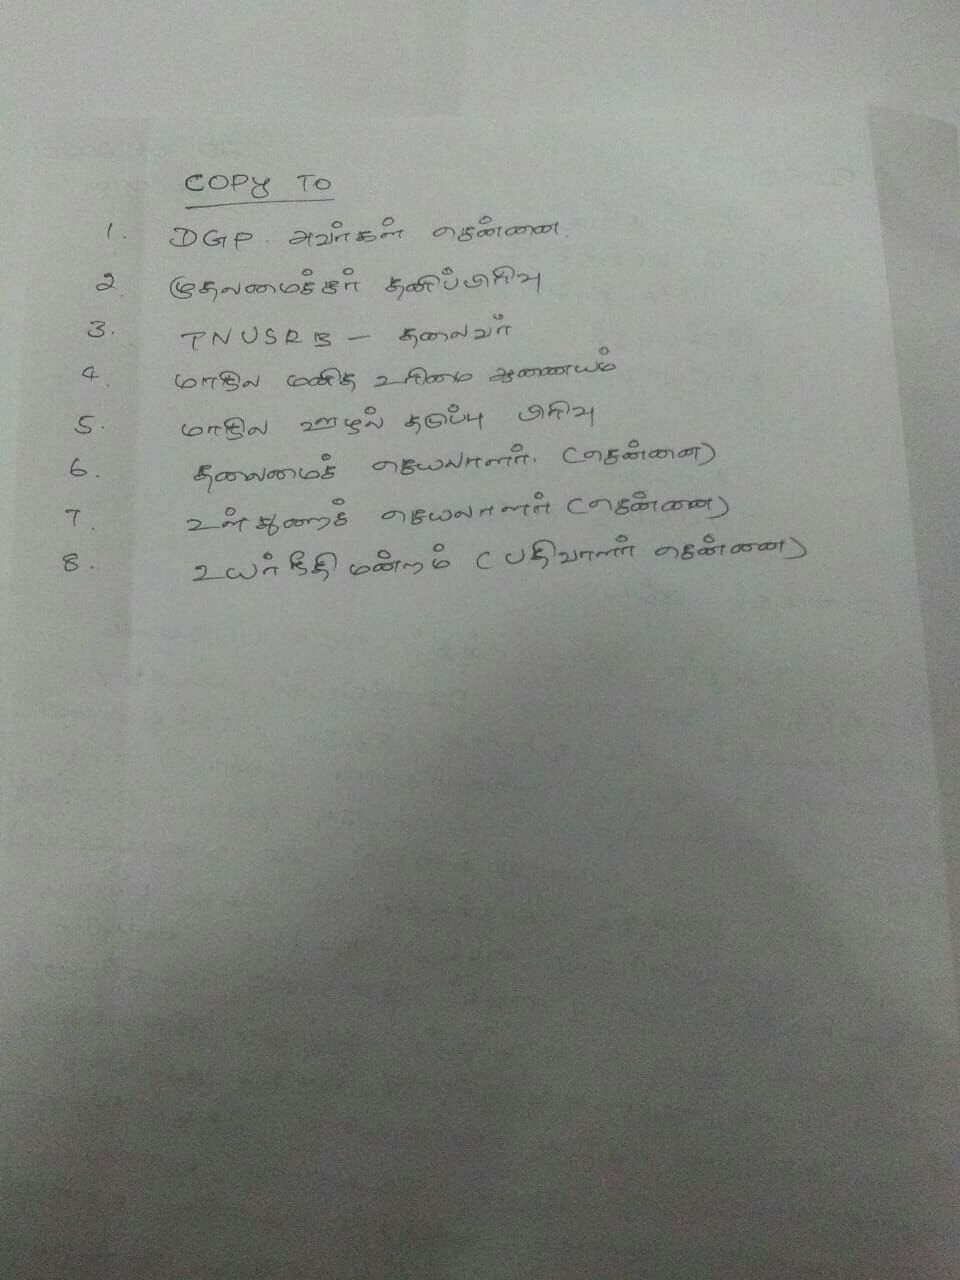 COPY TO
1. DGP. அவர்கள் சென்னை.
2. முதலமைச்சர் தனிப்பிரிவு
3. TNUSRB - தலைவர்
4. மாநில மனித உரிமை ஆணையம்
5. மாநில ஊழல் தடுப்பு பிரிவு
6. தலைமைச் செயலாளர். (சென்னை)
7. உள்துறைச் செயலாளர் (சென்னை)
8. உயர்நீதி மன்றம் (பதிவாளர் சென்னை)